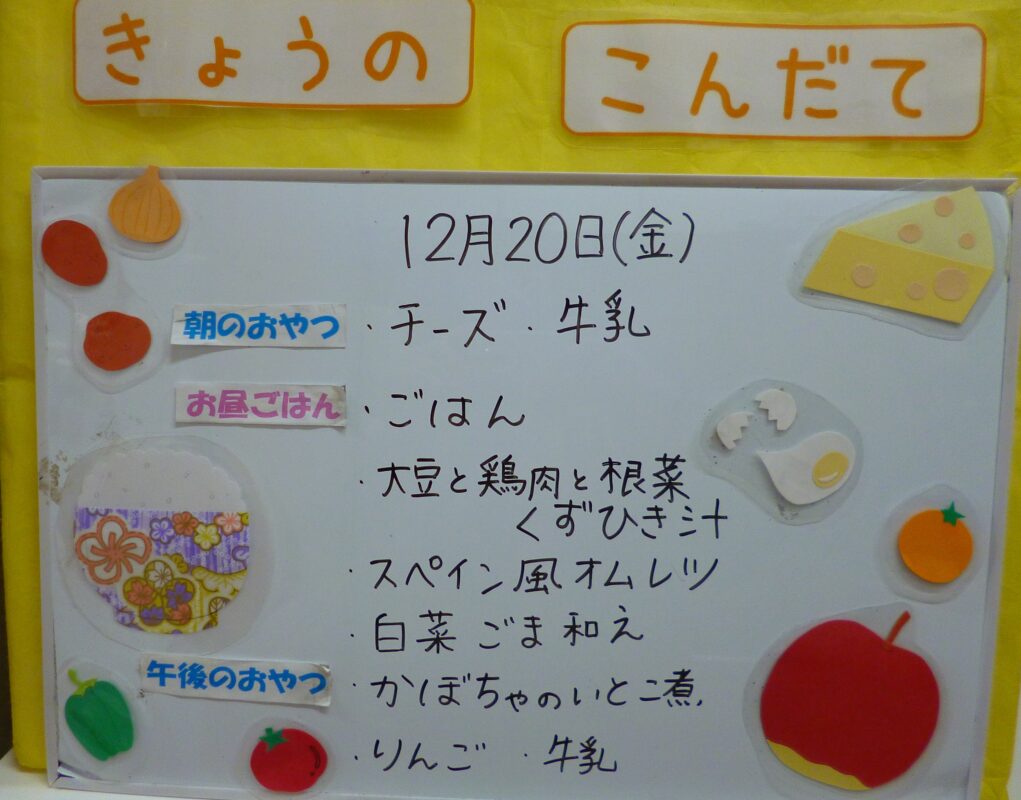 きょうの こんだて
12月20日(金)
朝のおやつ ・チーズ ・牛乳
お昼ごはん ・ごはん
・大豆と鶏肉と根菜
くずひき汁
・スペイン風オムレツ
・白菜ごま和え
午後のおやつ ・かぼちゃのいとこ煮
・りんご ・牛乳